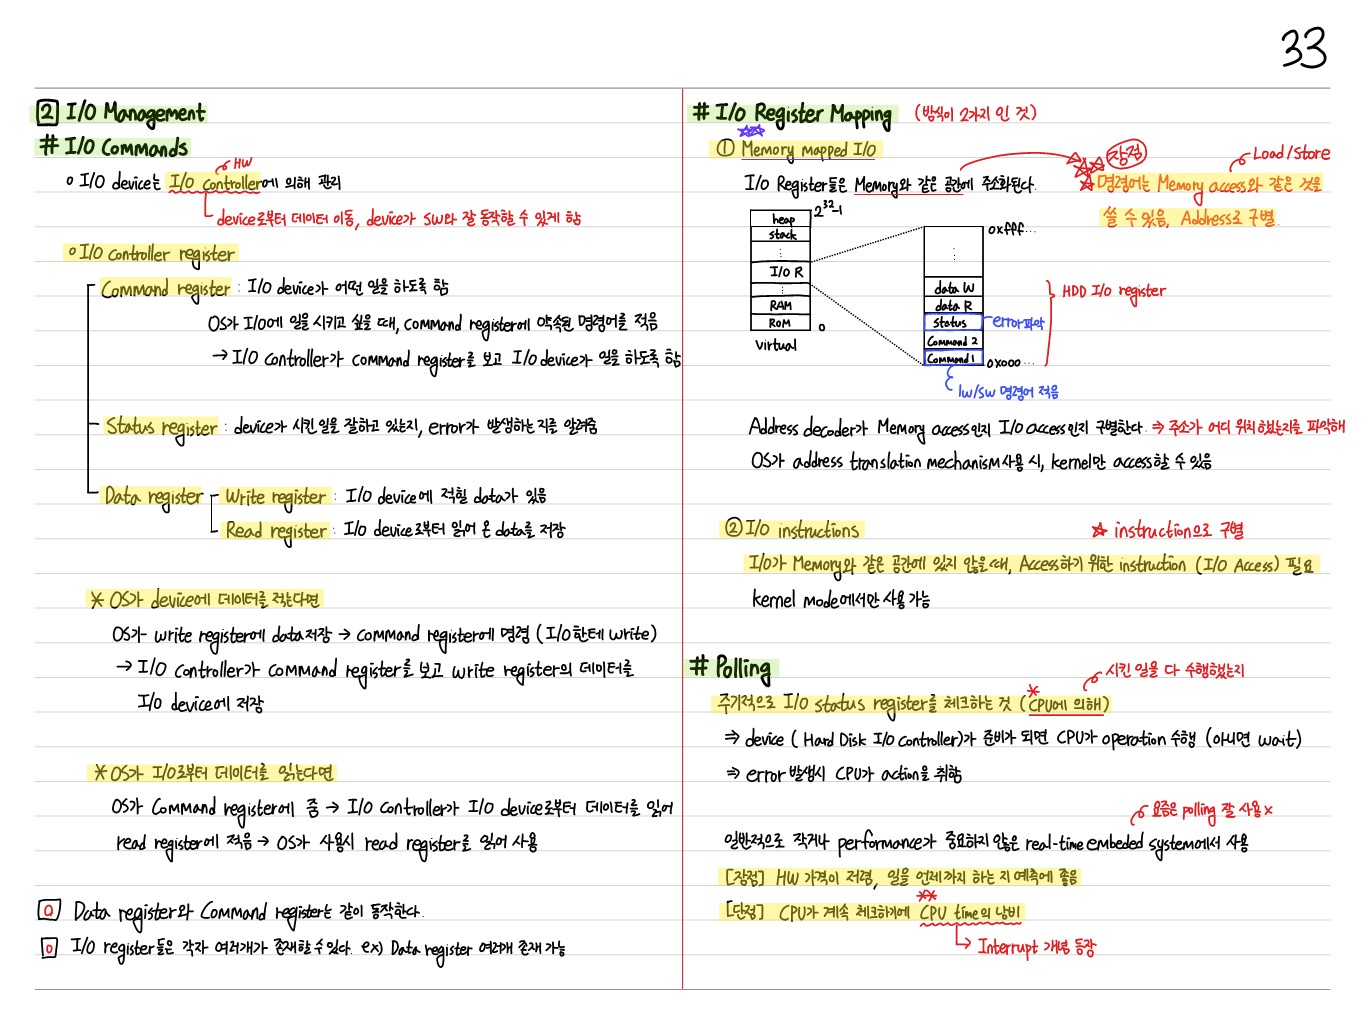 33
2 I/O Management
# I/O Commands
HW
o I/O device는 I/O controller에 의해 관리
device로부터 데이터 이동, device가 SW와 잘 동작할 수 있게 함
o I/O controller register
Command register : I/O device가 어떤 일을 하도록 함
OS가 I/O에 일을 시키고 싶을 때, command register에 약속된 명령어를 적음
→ I/O controller가 command register를 보고 I/O device가 일을 하도록 함
Status register : device가 시킨 일을 잘하고 있는지, error가 발생하는지를 알려줌
Data register Write register : I/O device에 적힐 data가 있음
Read register : I/O device로부터 읽어 온 data를 저장
* OS가 device에 데이터를 적는다면
OS가 write register에 data 저장 → command register에 명령 (I/O한테 write)
→ I/O controller가 command register를 보고 write register의 데이터를
I/O device에 저장
* OS가 I/O로부터 데이터를 읽는다면
OS가 Command register에 줌 → I/O controller가 I/O device로부터 데이터를 읽어
read register에 적음 → OS가 사용시 read register를 읽어 사용
Data register와 Command register는 같이 동작한다.
I/O register들은 각자 여러개가 존재할 수 있다. ex) Data register 여러개 존재 가능
# I/O Register Mapping (방식이 2가지 인 것)
① Memory mapped I/O
장점
Load/Store
I/O Register들은 Memory와 같은 공간에 주소화된다.
명령어는 Memory access와 같은 것을
쓸 수 있음, Address로 구별
heap
2^32-1
stack
⋮
I/O R
⋮
RAM
ROM
0
virtual
0xfff...
⋮
data W
data R
status
Command 2
Command 1
0x000...
HDD I/O register
error 파악
lw/sw 명령어 적음
Address decoder가 Memory access인지 I/O access인지 구별한다. ⇒ 주소가 어디 위치했는지를 파악해
OS가 address translation mechanism 사용 시, kernel만 access할 수 있음
② I/O instructions
☆ instruction으로 구별
I/O가 Memory와 같은 공간에 있지 않을 때, Access하기 위한 instruction (I/O Access) 필요
kernel mode에서만 사용 가능
# Polling
시킨 일을 다 수행했는지
주기적으로 I/O status register를 체크하는 것 (CPU에 의해)
⇒ device ( Hard Disk I/O controller)가 준비가 되면 CPU가 operation 수행 (아니면 wait)
⇒ error 발생시 CPU가 action을 취함
요즘은 polling 잘 사용 x
일반적으로 작거나 performance가 중요하지 않은 real-time embeded system에서 사용
[장점] HW 가격이 저렴, 일을 언제까지 하는 지 예측에 좋음
[단점] CPU가 계속 체크하기에 CPU time의 낭비
Interrupt 개념 등장